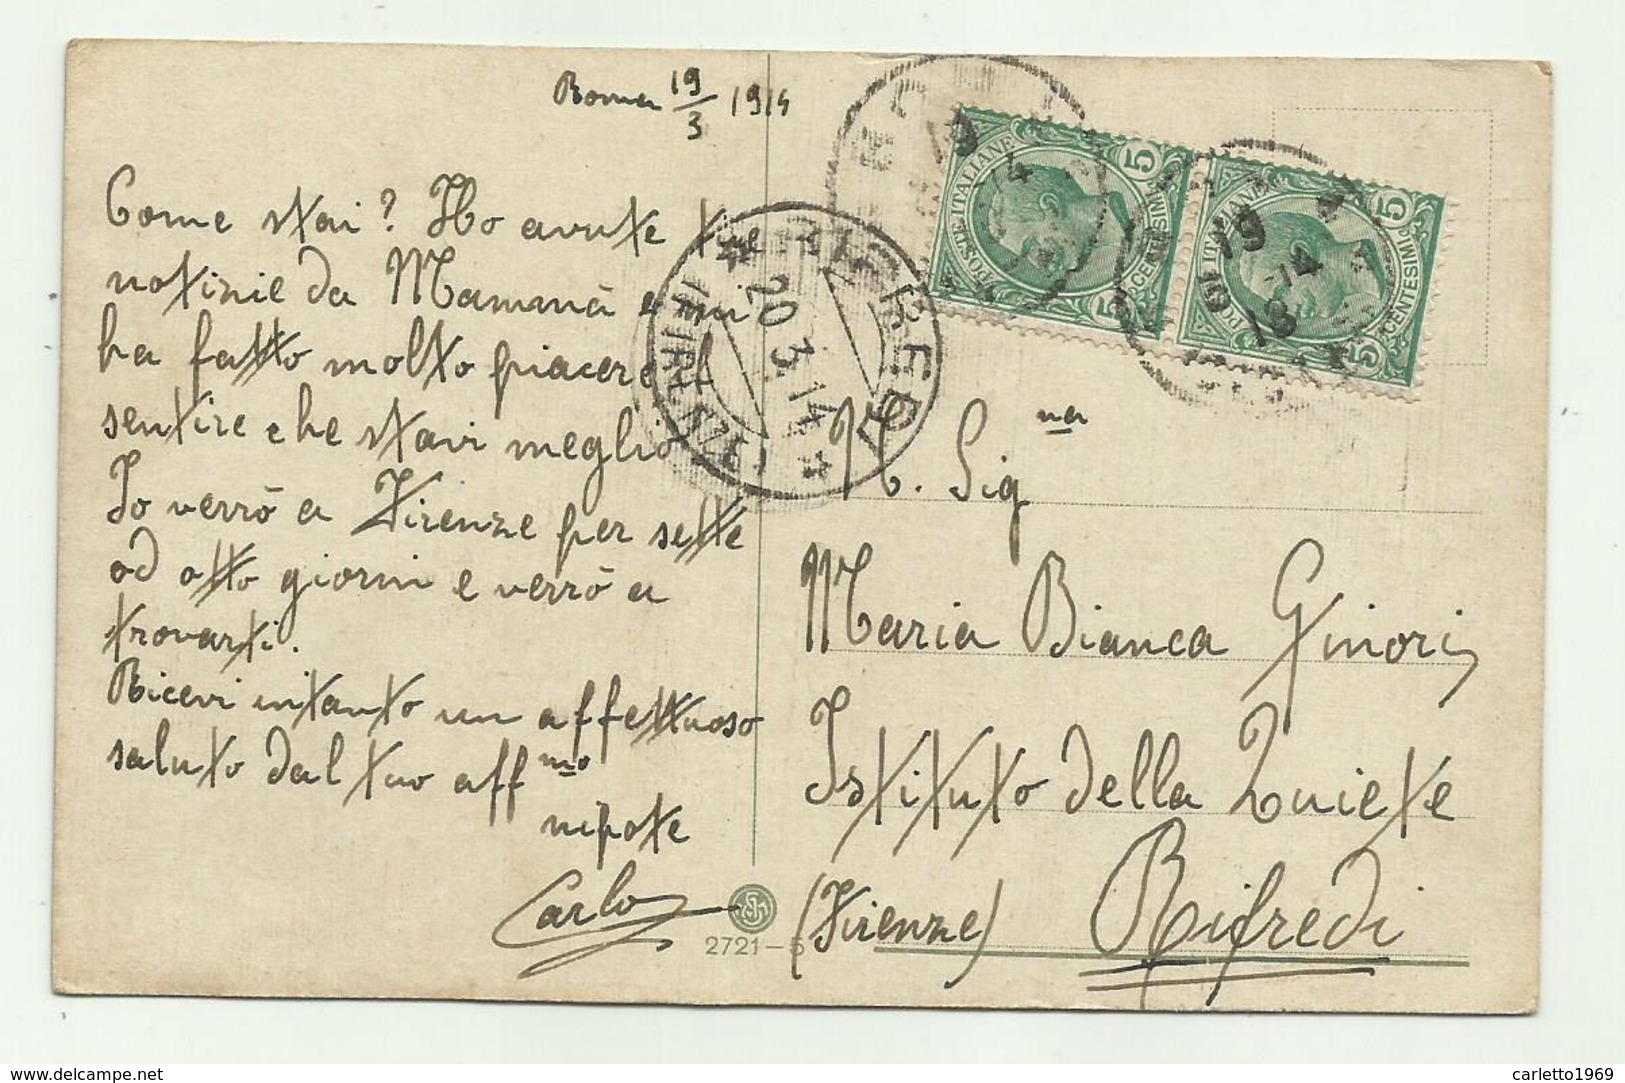 Roma 19/3 1914
Come stai? Ho avute tue
notizie da Mammà e mi
ha fatto molto piacere
sentire che stavi meglio
Io verrò a Firenze per sette
od otto giorni e verrò a
trovarti.
Ricevi intanto un affettuoso
saluto dal tuo aff mo
nipote
Carlo
2721-5
POSTE ITALIANE
CENTESIMI
5
5
POSTE ITALIANE
CENTESIMI
5
5
RIFREDI
20.3.14
(FIRENZE)
19
14
19
14
18
N. Sig na
Maria Bianca Ginori
Istituto della Quiete
(Firenze) Rifredi
www.delcampe.net
carletto1969